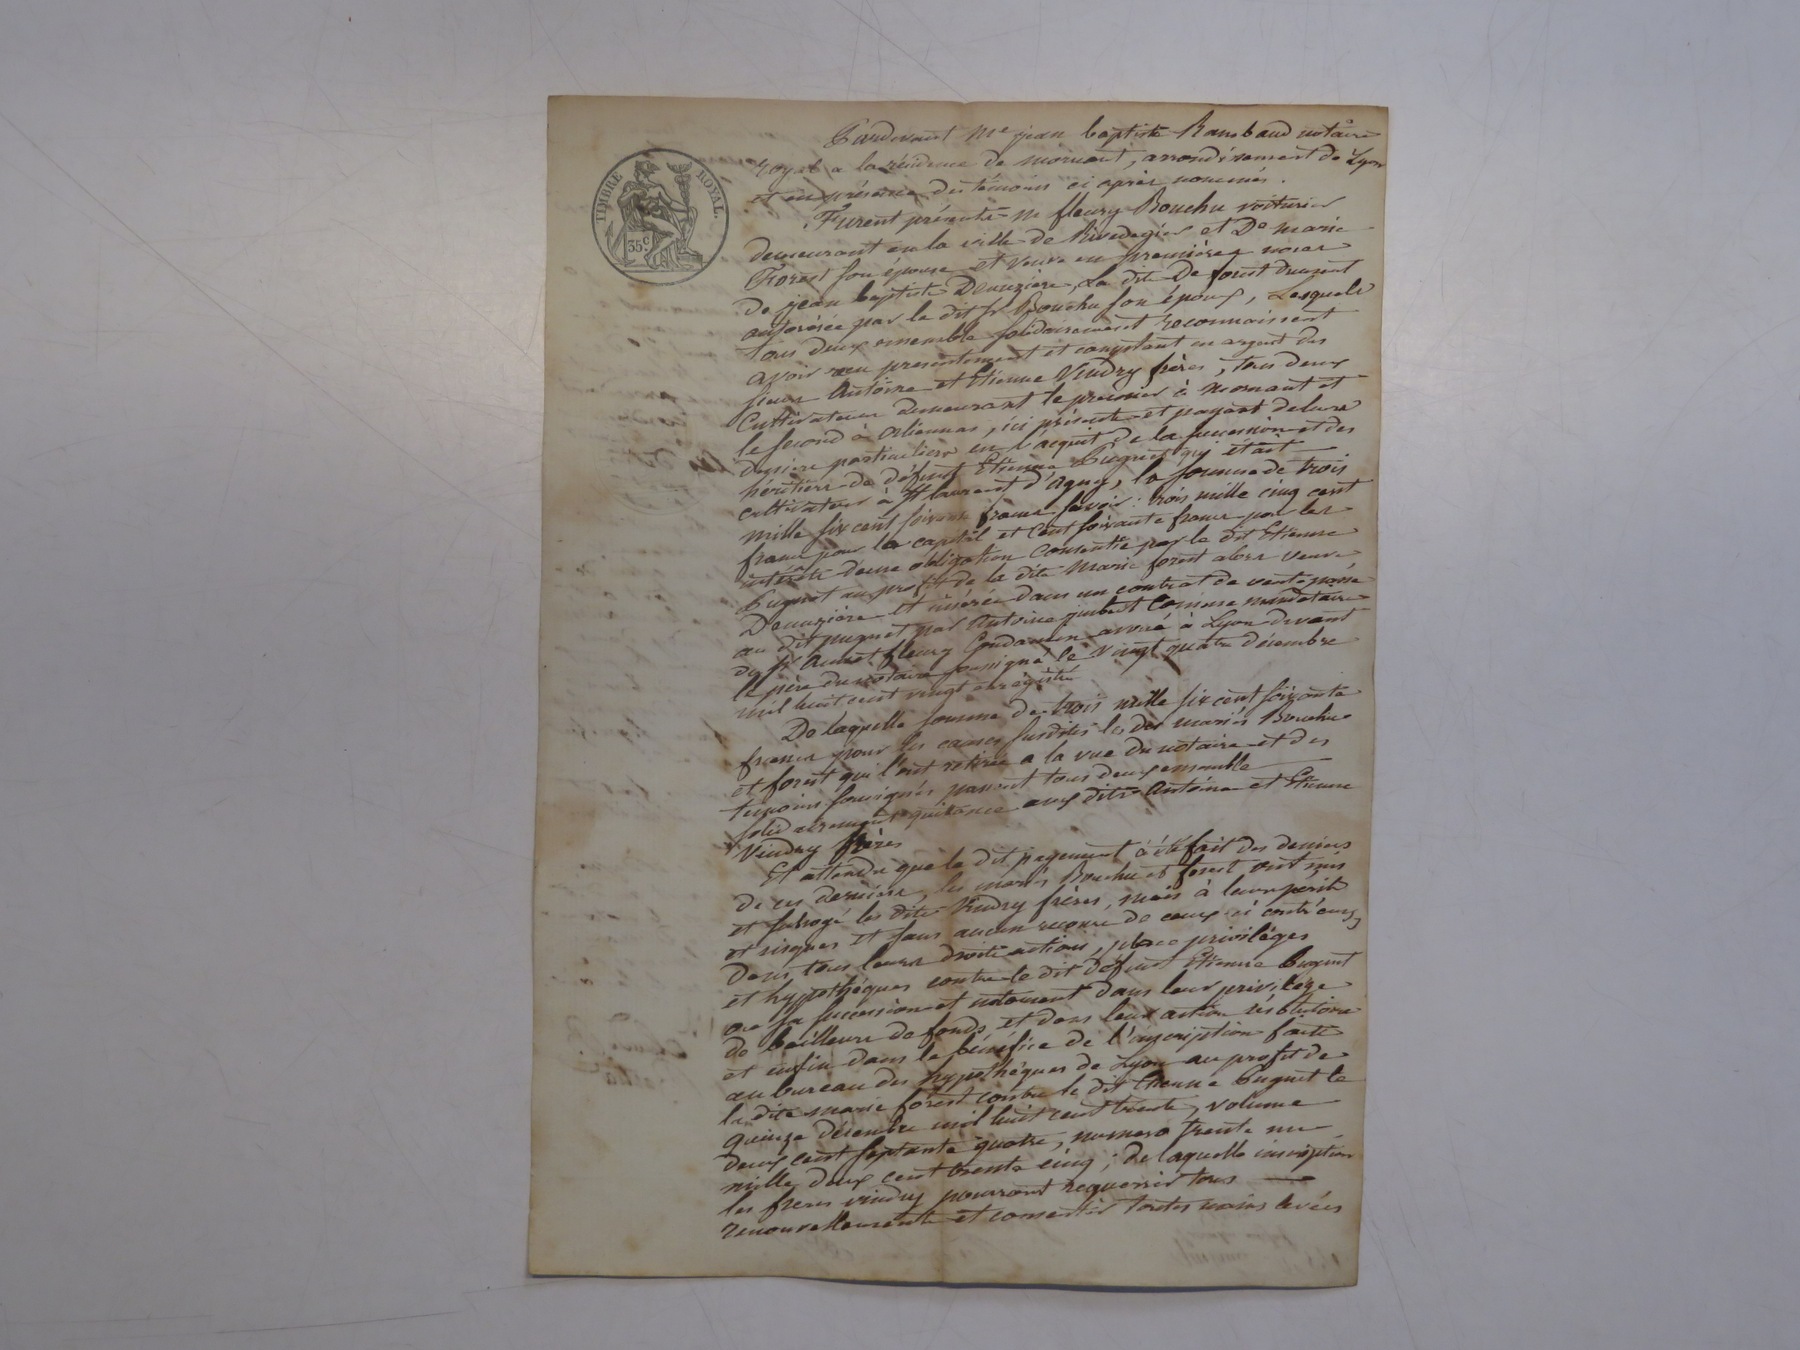 TIMBRE ROYAL.
35c.
Pardevant Me jean baptiste Rambaud notaire
royal a la résidence de mornant, arrondissement de Lyon
et en présence des témoins ci après nommés.
Furent présents m fleury Bouchu voiturier
demeurant en la ville de Rivedegier et De marie
Forest son épouse et veuve en premières noces
de jean baptiste Deuzière, la dite De forest duement
autorisée par le dit sr Bouchu son époux, Lesquels
tous deux ensemble solidairement reconnaissent
avoir reçu presentement et comptant en argent des
sieurs Antoine et Etienne Vindry frères, tous deux
Cultivateurs demeurant le premier à mornant et
le second à orlienas, ici présents et payant de leurs
deniers particuliers en l'acquit de la succession et des
héritiers de défunt Etienne Puguet qui était
cultivateur à St laurent d'agny, la somme de trois
mille six cent soixante francs savoir: trois mille cinq cent
francs pour le capital et cent soixante francs pour les
intérêts d'une obligation consentie par le dit Etienne
Puguet au profit de la dite Marie forest alors veuve
Deuzière et insérée dans un contrat de vente passé
au dit puguet par Antoine jambert comme mandataire
du sr fleury avoué à Lyon devant
le père du notaire soussigné le vingt quatre décembre
mil huit cent vingt enregistré
De laquelle somme de trois mille six cent soixante
francs pour les causes susdites les dits mariés Bouchu
et forest qui l'ont retirée a la vue du notaire et des
temoins soussignés passent tous deux ensemble
solidairement quittance aux dits Antoine et Etienne
Vindry frères
Et attendu que le dit payement a été fait des deniers
de ces derniers, les mariés Bouchu et forest ont mis
et subrogé les dits Vindry frères, mais à leurs périls
et risques et sans aucun recours de ceux ci contr'eux,
dans tous leurs droits actions, place privilèges
et hypothèques contre le dit défunt Etienne Puguet
ou sa succession et notament dans leur privilege
de bailleurs de fonds et dans leur action résolutoire
et enfin dans le bénéfice de l'inscription faite
au bureau des hypothèques de Lyon au profit de
la dite marie forest contre le dit Etienne Puguet le
quinze décembre mil huit cent trente, volume
deux cent septante quatre, numero trente un
mille deux cent trente cinq; de laquelle inscription
les freres vindry pourront requerrir tous
renouvellements et consentir toutes mains levées